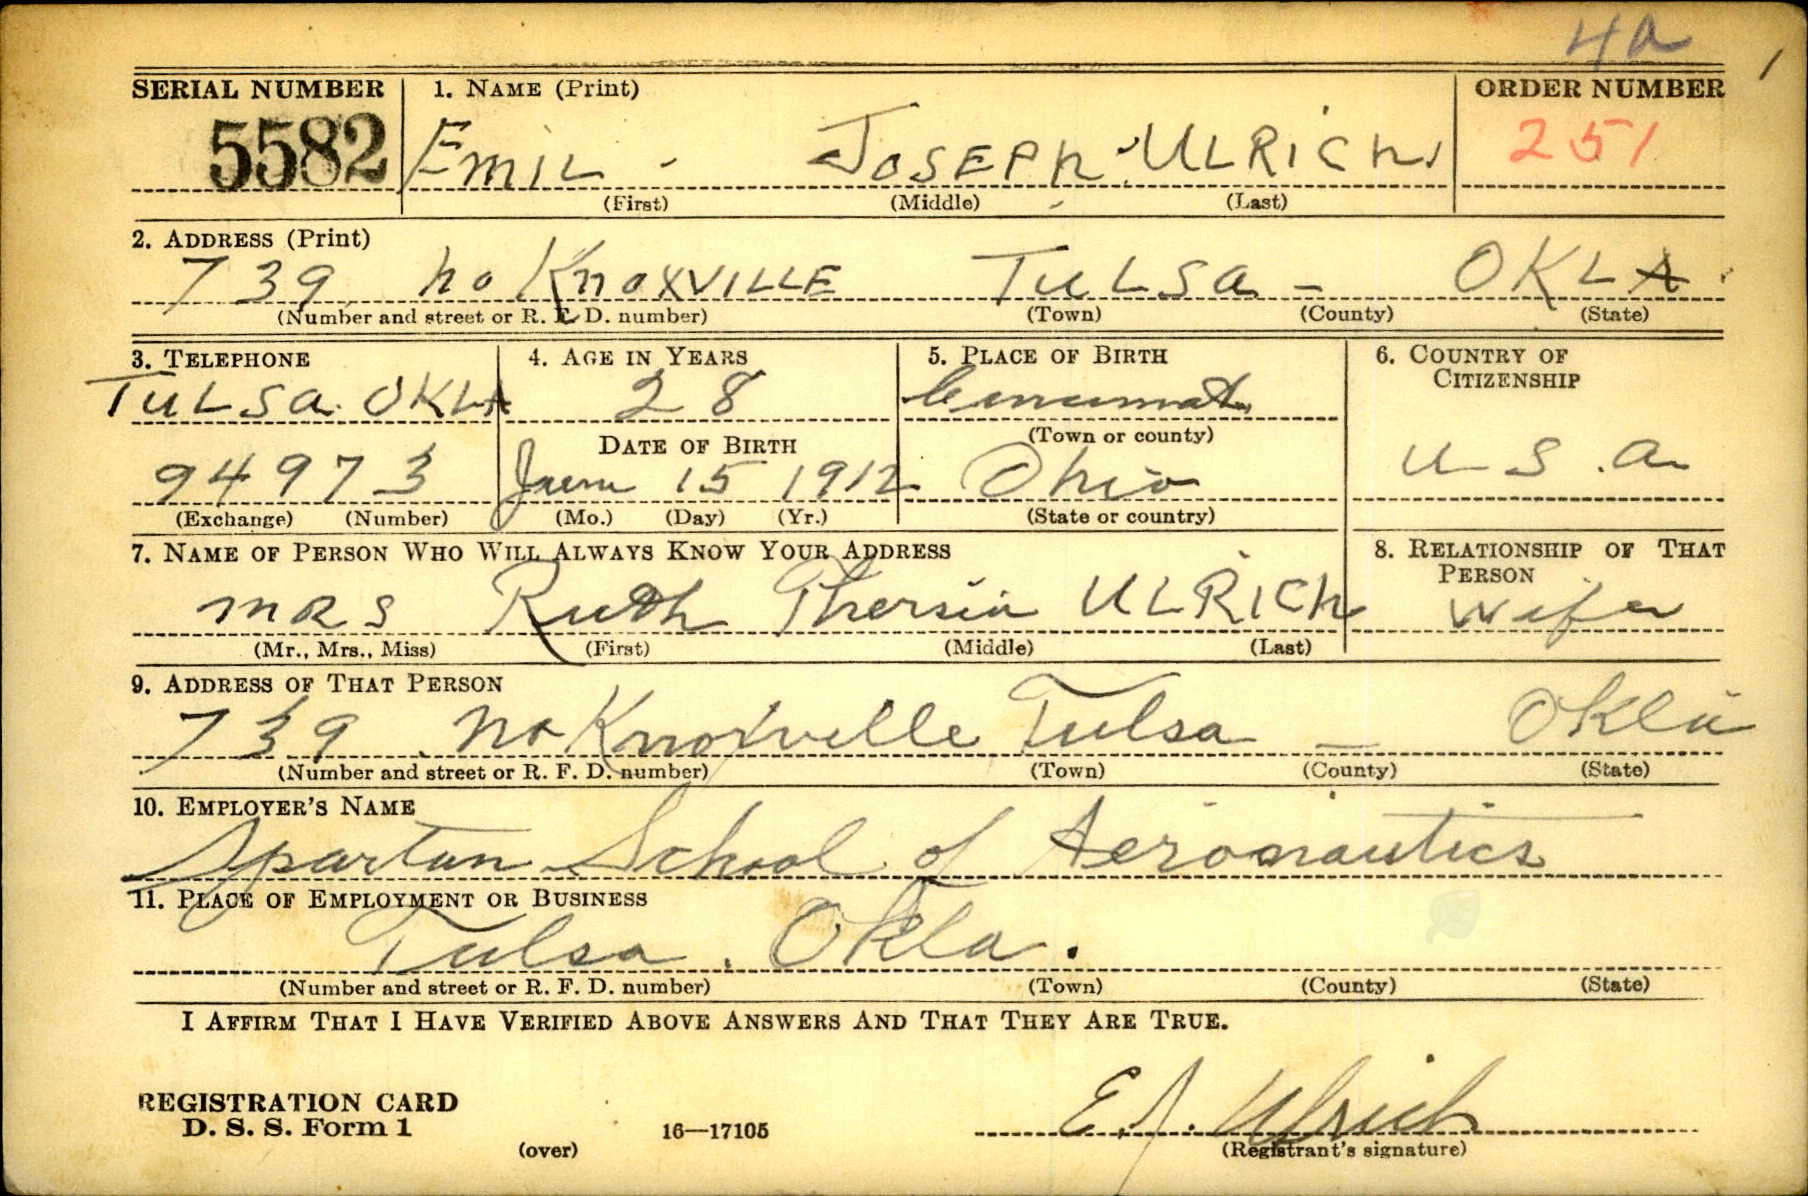 4a
SERIAL NUMBER 1. NAME (Print) ORDER NUMBER
5582 EMIL - JOSEPh ULRICh 251
(First) (Middle) (Last)
2. ADDRESS (Print)
739 no KnoxVILLE TuLSa - OKLA
(Number and street or R. F. D. number) (Town) (County) (State)
3. TELEPHONE 4. AGE IN YEARS 5. PLACE OF BIRTH 6. COUNTRY OF CITIZENSHIP
TuLSa. OKLA 28 Cincinnati
DATE OF BIRTH (Town or county)
94973 June 15 1912 Ohio U S. a
(Exchange) (Number) (Mo.) (Day) (Yr.) (State or country)
7. NAME OF PERSON WHO WILL ALWAYS KNOW YOUR ADDRESS 8. RELATIONSHIP OF THAT PERSON
MRS Ruth Thersia ULRICh Wife
(Mr., Mrs., Miss) (First) (Middle) (Last)
9. ADDRESS OF THAT PERSON
739 no Knoxville Tulsa - Okla
(Number and street or R. F. D. number) (Town) (County) (State)
10. EMPLOYER'S NAME
Spartan School of Aeronautics
11. PLACE OF EMPLOYMENT OR BUSINESS
Tulsa. Okla.
(Number and street or R. F. D. number) (Town) (County) (State)
I AFFIRM THAT I HAVE VERIFIED ABOVE ANSWERS AND THAT THEY ARE TRUE.
REGISTRATION CARD
D. S. S. Form 1 16—17105 E. J. Ulrich
(over) (Registrant's signature)